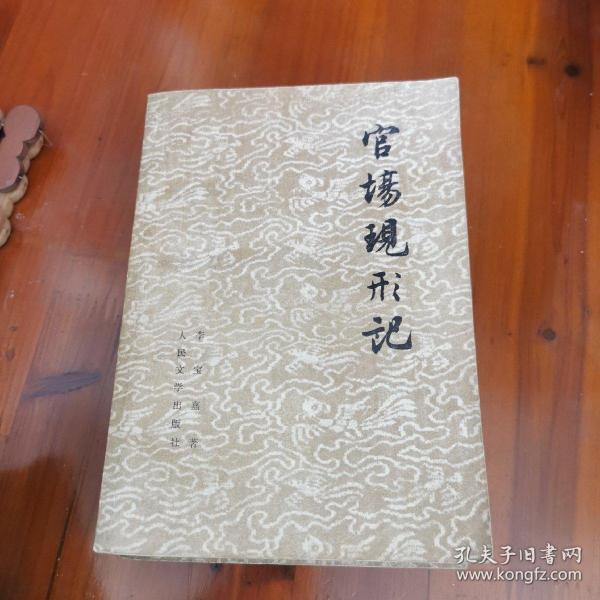 官場現形記
李宝嘉著
人民文学出版社
孔夫子旧书网
www.kongfz.com